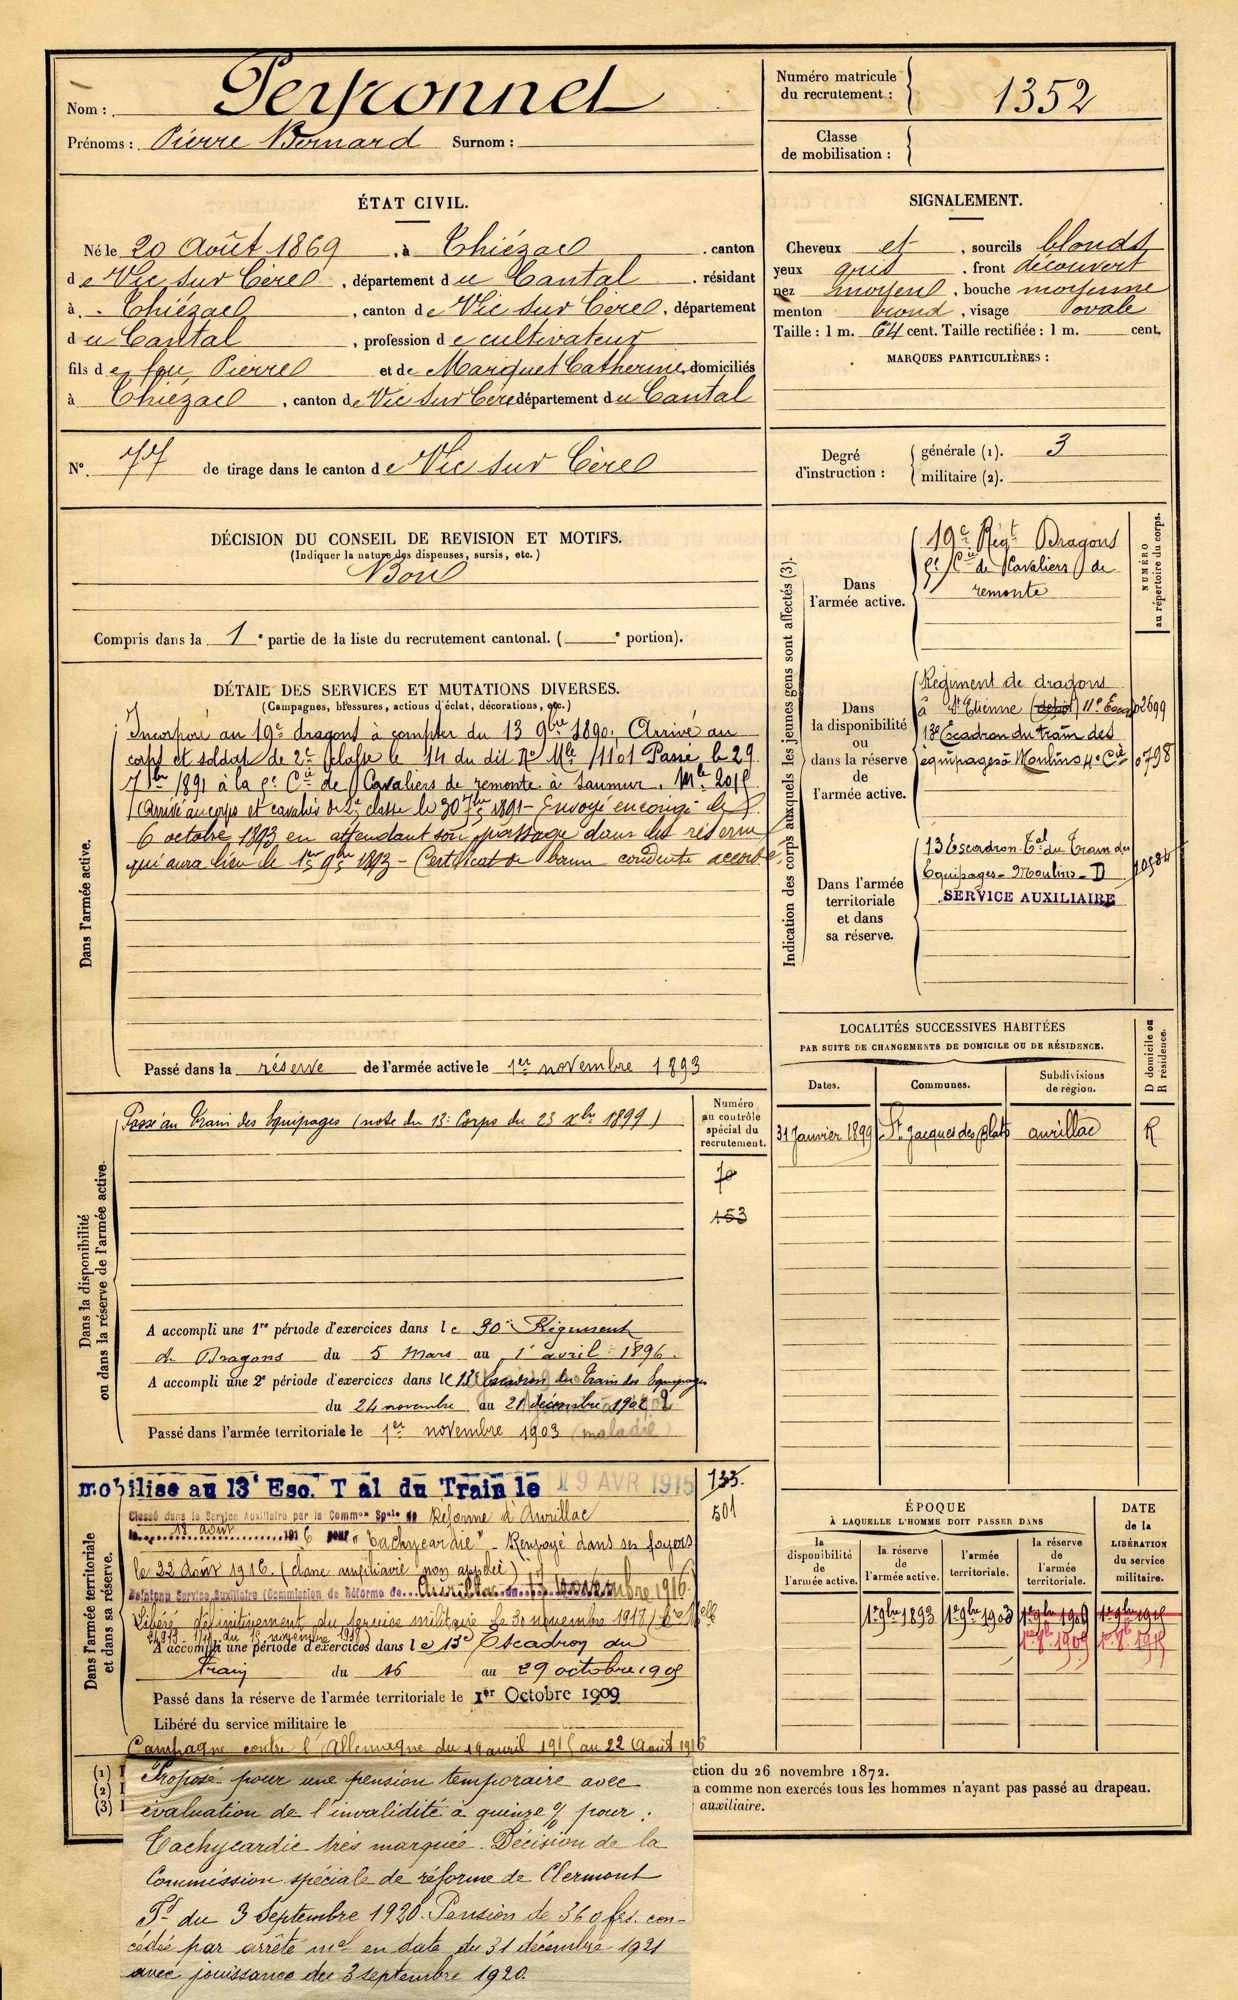 Nom : Peyronnet
Prénoms : Pierre Bernard Surnom :
Numéro matricule
du recrutement : 1352
Classe
de mobilisation :
ÉTAT CIVIL.
Né le 20 Août 1869, à Thiézac, canton
de Vic sur Cère, département du Cantal, résidant
à Thiézac, canton de Vic sur Cère, département
du Cantal, profession de cultivateur
fils de feu Pierre et de Marquet Catherine, domiciliés
à Thiézac, canton de Vic sur Cère département du Cantal
SIGNALEMENT.
Cheveux et, sourcils blonds
yeux gris, front découvert
nez moyen, bouche moyenne
menton rond, visage ovale
Taille : 1 m. 64 cent. Taille rectifiée : 1 m. cent.
MARQUES PARTICULIÈRES :
N° 77 de tirage dans le canton de Vic sur Cère
Degré
d'instruction :
générale (1). 3
militaire (2).
DÉCISION DU CONSEIL DE REVISION ET MOTIFS.
(Indiquer la nature des dispenses, sursis, etc.)
Bon
Compris dans la 1e partie de la liste du recrutement cantonal. ( e portion).
DÉTAIL DES SERVICES ET MUTATIONS DIVERSES.
(Campagnes, blessures, actions d'éclat, décorations, etc.)
Dans l'armée active.
Incorporé au 19e dragons à compter du 13 9bre 1890, Arrivé au
corps et soldat de 2e classe le 14 du dit No Mle 1101 Passé le 29
7bre 1891 à la 5e Cie de Cavaliers de remonte à Saumur, Mle 2015
Arrivé au corps et cavalier de 2e classe le 30 7bre 1891 - Envoyé en congé le
6 octobre 1893 en attendant son passage dans la réserve
qui aura lieu le 1er 9bre 1893 - Certificat de bonne conduite accordé
Passé dans la réserve de l'armée active le 1er novembre 1893
Indication des corps auxquels les jeunes gens sont affectés (3).
NUMÉRO
au répertoire du corps.
Dans
l'armée active.
19e Régt Dragons
5e Cie de Cavaliers de
remonte
Dans
la disponibilité
ou
dans la réserve
de
l'armée active.
Régiment de dragons
à St Etienne (dépôt) 11e Escon 02699
13e Escadron du train des
équipages à Moulins 4e Cie 0798
Dans l'armée
territoriale
et dans
sa réserve.
13 Escadron Tal du Train des
Equipages - Moulins - D 10584
SERVICE AUXILIAIRE
LOCALITÉS SUCCESSIVES HABITÉES
PAR SUITE DE CHANGEMENTS DE DOMICILE OU DE RÉSIDENCE.
D domicile ou
R résidence.
Dates. Communes. Subdivisions
de région.
31 Janvier 1899 St Jacques des Blats Aurillac R
Dans la disponibilité
ou dans la réserve de l'armée active.
Numéro
au contrôle
spécial du
recrutement.
Passé au Train des Equipages (note du 13e Corps du 23 xbre 1899)
70
153
A accompli une 1re période d'exercices dans le 30e Régiment
de Dragons du 5 Mars au 1er avril 1896.
A accompli une 2e période d'exercices dans le 13e Escadron du Train des Equipages
du 24 novembre au 21 décembre 1902
Passé dans l'armée territoriale le 1er novembre 1903 (maladie)
Dans l'armée territoriale
et dans sa réserve.
mobilise au 13e Esc. Tal du Train le 19 AVR 1915
133.
501
Classé dans le Service Auxiliaire par la Common Spale de Réforme d'Aurillac
le 18 août 1916 pour "Tachycardie" - Renvoyé dans ses foyers
le 22 Août 1916. (classe auxiliaire non appelée)
Maintenu Service Auxiliaire (Commission de Réforme de Aurillac du 17 novembre 1916)
Libéré définitivement du service militaire le 30 novembre 1918
du 12 novembre 1918)
A accompli une période d'exercices dans le 13e Escadron du
train du 16 au 29 octobre 1905
Passé dans la réserve de l'armée territoriale le 1er Octobre 1909
Libéré du service militaire le
Campagne contre l'Allemagne du 19 avril 1915 au 22 Août 1916
ÉPOQUE
À LAQUELLE L'HOMME DOIT PASSER DANS
DATE
de la
LIBÉRATION
du service
militaire.
la
disponibilité
de
l'armée active.
la réserve
de
l'armée active.
l'armée
territoriale.
la réserve
de
l'armée
territoriale.
1er 9bre 1893 1er 9bre 1903 1er 9bre 1909 1er 9bre 1915
1er 8bre 1909 1er 8bre 1915
(1) I
(2) I
(3) I
ction du 26 novembre 1872.
a comme non exercés tous les hommes n'ayant pas passé au drapeau.
auxiliaire.
Proposé pour une pension temporaire avec
évaluation de l'invalidité à quinze % pour :
Tachycardie très marquée. Décision de la
Commission spéciale de réforme de Clermont
Fd du 3 Septembre 1920. Pension de 360 frs. con-
cédée par arrêté mel en date du 31 décembre 1921
avec jouissance du 3 septembre 1920.